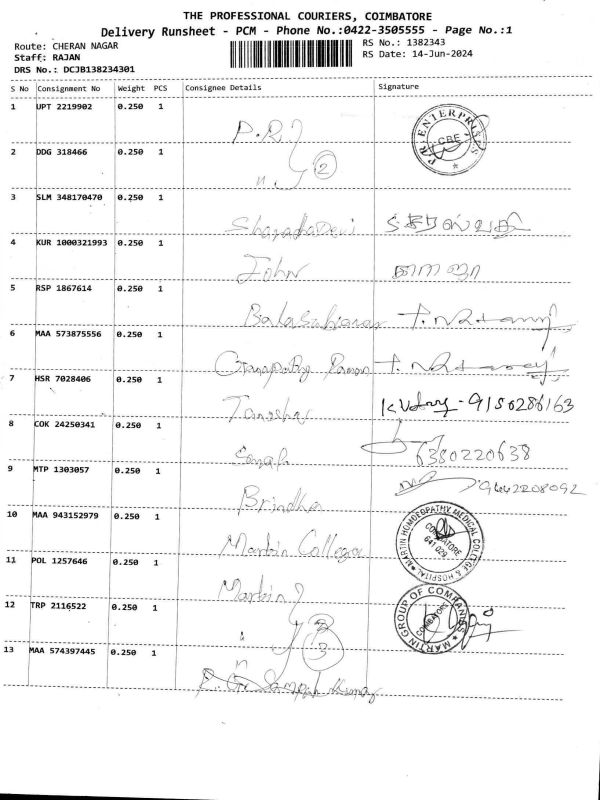 THE PROFESSIONAL COURIERS, COIMBATORE
Delivery Runsheet - PCM - Phone No.:0422-3505555 - Page No.:1
Route: CHERAN NAGAR
RS No.: 1382343
Staff: RAJAN
RS Date: 14-Jun-2024
DRS No.: DCJB138234301
S No Consignment No Weight PCS Consignee Details Signature
1 UPT 2219902 0.250 1
P.R
P.R. ENTERPRISES
CBE
2 DDG 318466 0.250 1
2
3 SLM 348170470 0.250 1
SharadhaDevi
4 KUR 1000321993 0.250 1
John
5 RSP 1867614 0.250 1
6 MAA 573875556 0.250 1
Ganapathy Raman
7 HSR 7028406 0.250 1
9150286163
8 COK 24250341 0.250 1
6380220638
9 MTP 1303057 0.250 1
Brindha
9442208092
10 MAA 943152979 0.250 1
Martin College
MARTIN HOMOEOPATHY MEDICAL COLLEGE & HOSPITAL
COIMBATORE
641 029
11 POL 1257646 0.250 1
Martin
12 TRP 2116522 0.250 1
3
MARTIN GROUP OF COMPANIES
COIMBATORE
13 MAA 574397445 0.250 1
Kumar